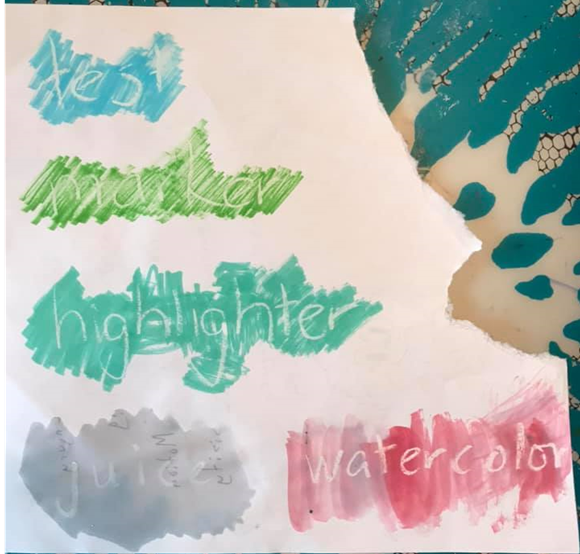 test
marker
highlighter
juice watercolor